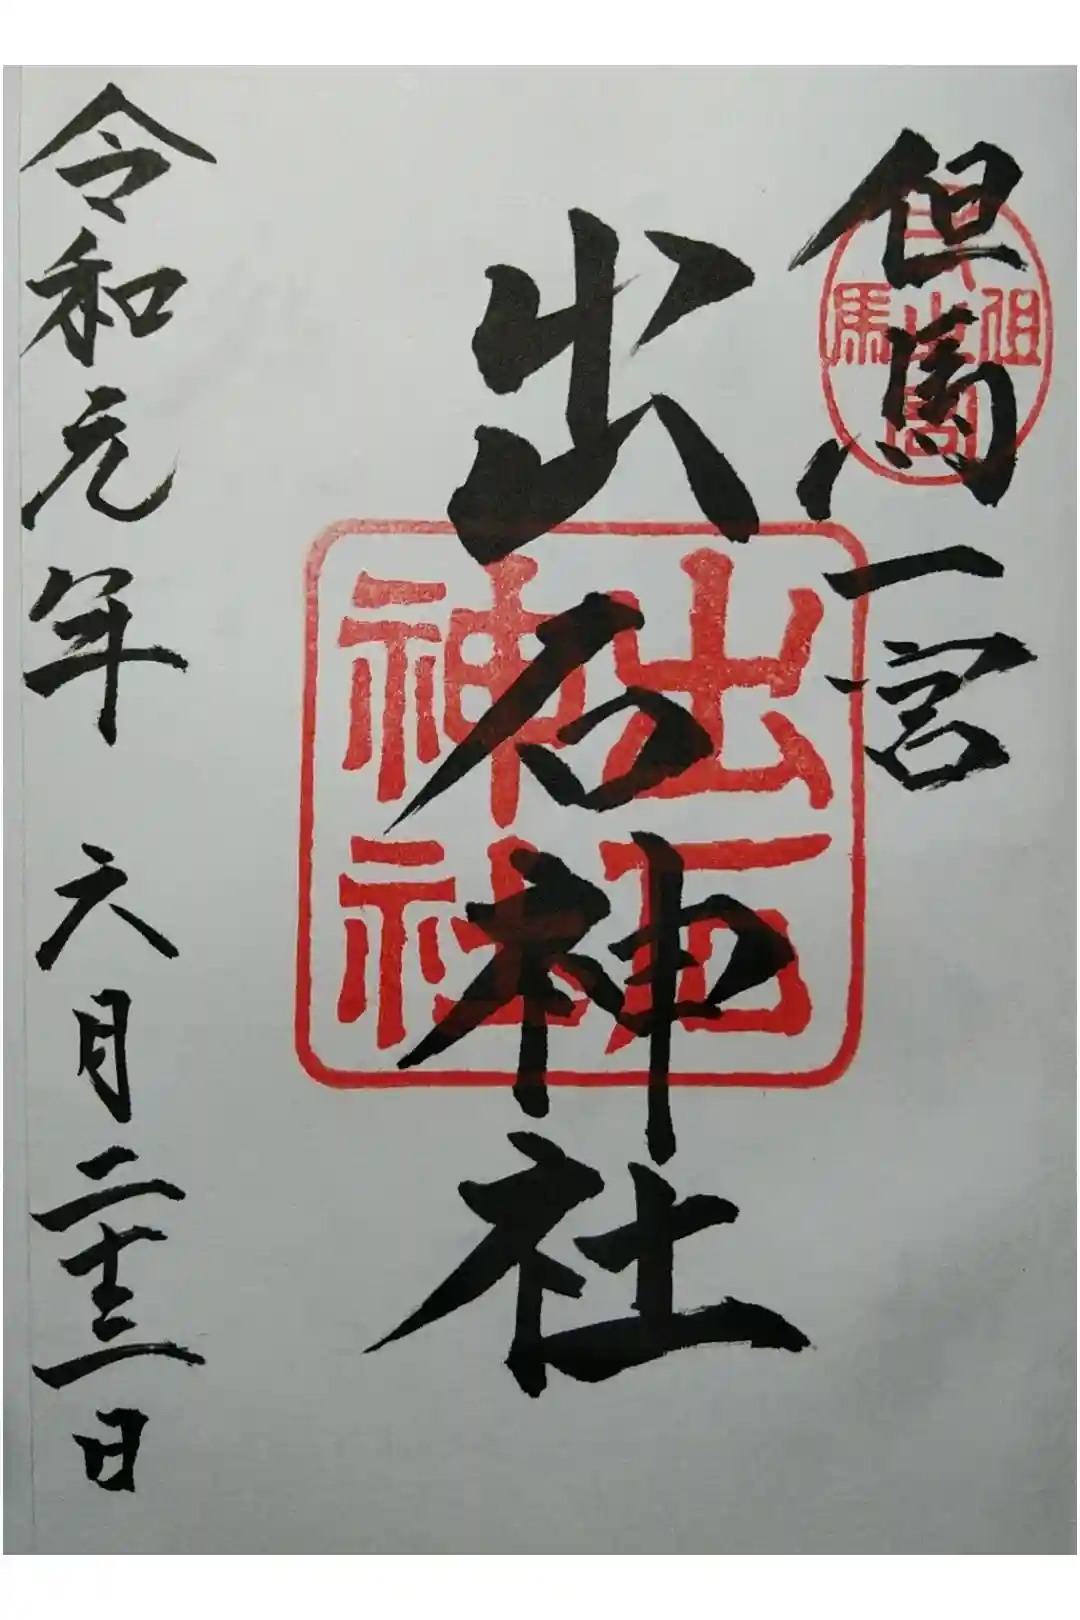 但馬一宮
出石神社
出石神社
令和元年 六月二十三日